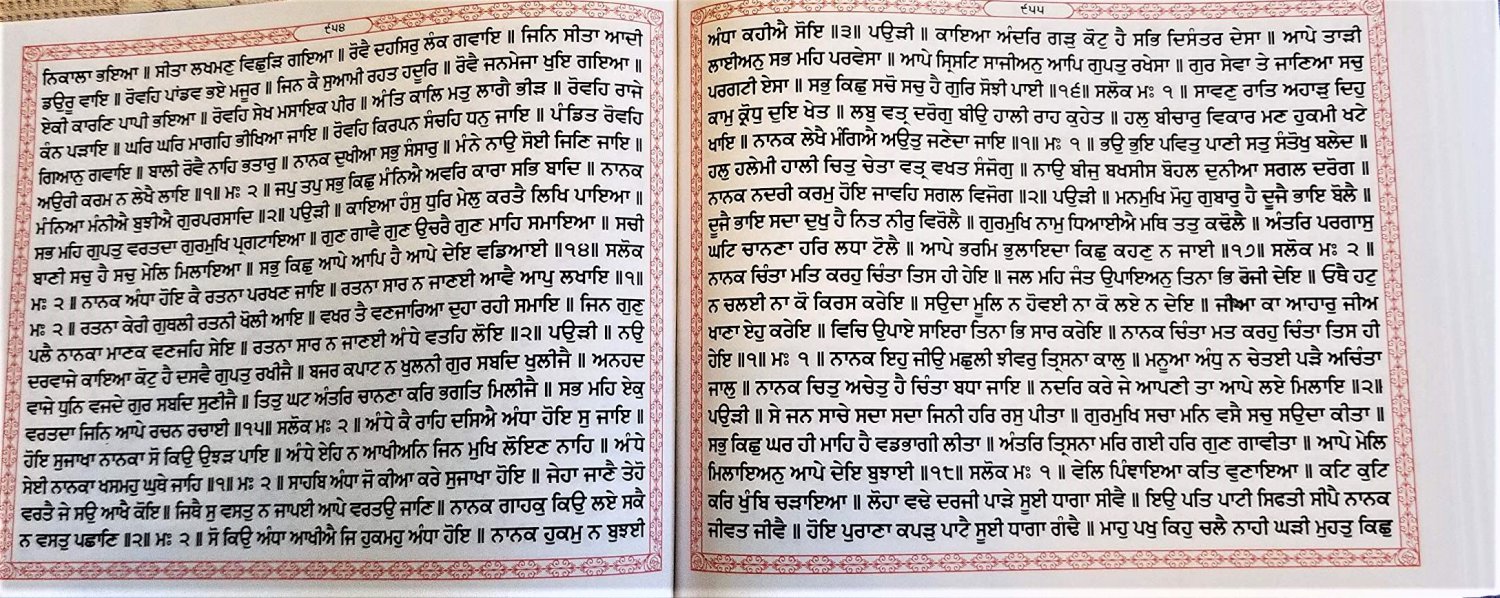 ੯੫੪
ਨਿਕਾਲਾ ਭਇਆ ॥ ਸੀਤਾ ਲਖਮਣੁ ਵਿਛੁੜਿ ਗਇਆ ॥ ਰੋਵੈ ਦਹਸਿਰੁ ਲੰਕ ਗਵਾਇ ॥ ਜਿਨਿ ਸੀਤਾ ਆਦੀ
ਡਉਰੂ ਵਾਇ ॥ ਰੋਵਹਿ ਪਾਂਡਵ ਭਏ ਮਜੂਰ ॥ ਜਿਨ ਕੈ ਸੁਆਮੀ ਰਹਤ ਹਦੂਰਿ ॥ ਰੋਵੈ ਜਨਮੇਜਾ ਖੁਇ ਗਇਆ ॥
ਏਕੀ ਕਾਰਣਿ ਪਾਪੀ ਭਇਆ ॥ ਰੋਵਹਿ ਸੇਖ ਮਸਾਇਕ ਪੀਰ ॥ ਅੰਤਿ ਕਾਲਿ ਮਤੁ ਲਾਗੈ ਭੀੜ ॥ ਰੋਵਹਿ ਰਾਜੇ
ਕੰਨ ਪੜਾਇ ॥ ਘਰਿ ਘਰਿ ਮਾਗਹਿ ਭੀਖਿਆ ਜਾਇ ॥ ਰੋਵਹਿ ਕਿਰਪਨ ਸੰਚਹਿ ਧਨੁ ਜਾਇ ॥ ਪੰਡਿਤ ਰੋਵਹਿ
ਗਿਆਨੁ ਗਵਾਇ ॥ ਬਾਲੀ ਰੋਵੈ ਨਾਹਿ ਭਤਾਰੁ ॥ ਨਾਨਕ ਦੁਖੀਆ ਸਭੁ ਸੰਸਾਰੁ ॥ ਮੰਨੇ ਨਾਉ ਸੋਈ ਜਿਣਿ ਜਾਇ ॥
ਅਉਰੀ ਕਰਮ ਨ ਲੇਖੈ ਲਾਇ ॥੧॥ ਮਃ ੨ ॥ ਜਪੁ ਤਪੁ ਸਭੁ ਕਿਛੁ ਮੰਨਿਐ ਅਵਰਿ ਕਾਰਾ ਸਭਿ ਬਾਦਿ ॥ ਨਾਨਕ
ਮੰਨਿਆ ਮੰਨੀਐ ਬੁਝੀਐ ਗੁਰਪਰਸਾਦਿ ॥੨॥ ਪਉੜੀ ॥ ਕਾਇਆ ਹੰਸੁ ਧੁਰਿ ਮੇਲੁ ਕਰਤੈ ਲਿਖਿ ਪਾਇਆ ॥
ਸਭ ਮਹਿ ਗੁਪਤੁ ਵਰਤਦਾ ਗੁਰਮੁਖਿ ਪ੍ਰਗਟਾਇਆ ॥ ਗੁਣ ਗਾਵੈ ਗੁਣ ਉਚਰੈ ਗੁਣ ਮਾਹਿ ਸਮਾਇਆ ॥ ਸਚੀ
ਬਾਣੀ ਸਚੁ ਹੈ ਸਚੁ ਮੇਲਿ ਮਿਲਾਇਆ ॥ ਸਭੁ ਕਿਛੁ ਆਪੇ ਆਪਿ ਹੈ ਆਪੇ ਦੇਇ ਵਡਿਆਈ ॥੧੪॥ ਸਲੋਕ
ਮਃ ੨ ॥ ਨਾਨਕ ਅੰਧਾ ਹੋਇ ਕੈ ਰਤਨਾ ਪਰਖਣ ਜਾਇ ॥ ਰਤਨਾ ਸਾਰ ਨ ਜਾਣਈ ਆਵੈ ਆਪੁ ਲਖਾਇ ॥੧॥
ਮਃ ੨ ॥ ਰਤਨਾ ਕੇਰੀ ਗੁਥਲੀ ਰਤਨੀ ਖੋਲੀ ਆਇ ॥ ਵਖਰ ਤੈ ਵਣਜਾਰਿਆ ਦੁਹਾ ਰਹੀ ਸਮਾਇ ॥ ਜਿਨ ਗੁਣੁ
ਪਲੈ ਨਾਨਕਾ ਮਾਣਕ ਵਣਜਹਿ ਸੇਇ ॥ ਰਤਨਾ ਸਾਰ ਨ ਜਾਣਈ ਅੰਧੇ ਵਤਹਿ ਲੋਇ ॥੨॥ ਪਉੜੀ ॥ ਨਉ
ਦਰਵਾਜੇ ਕਾਇਆ ਕੋਟੁ ਹੈ ਦਸਵੈ ਗੁਪਤੁ ਰਖੀਜੈ ॥ ਬਜਰ ਕਪਾਟ ਨ ਖੁਲਨੀ ਗੁਰ ਸਬਦਿ ਖੁਲੀਜੈ ॥ ਅਨਹਦ
ਵਾਜੇ ਧੁਨਿ ਵਜਦੇ ਗੁਰ ਸਬਦਿ ਸੁਣੀਜੈ ॥ ਤਿਤੁ ਘਟ ਅੰਤਰਿ ਚਾਨਣਾ ਕਰਿ ਭਗਤਿ ਮਿਲੀਜੈ ॥ ਸਭ ਮਹਿ ਏਕੁ
ਵਰਤਦਾ ਜਿਨਿ ਆਪੇ ਰਚਨ ਰਚਾਈ ॥੧੫॥ ਸਲੋਕ ਮਃ ੨ ॥ ਅੰਧੇ ਕੈ ਰਾਹਿ ਦਸਿਐ ਅੰਧਾ ਹੋਇ ਸੁ ਜਾਇ ॥
ਹੋਇ ਸੁਜਾਖਾ ਨਾਨਕਾ ਸੋ ਕਿਉ ਉਝੜ ਪਾਇ ॥ ਅੰਧੇ ਏਹਿ ਨ ਆਖੀਅਨਿ ਜਿਨ ਮੁਖਿ ਲੋਇਣ ਨਾਹਿ ॥ ਅੰਧੇ
ਸੇਈ ਨਾਨਕਾ ਖਸਮਹੁ ਘੁਥੇ ਜਾਹਿ ॥੧॥ ਮਃ ੨ ॥ ਸਾਹਬਿ ਅੰਧਾ ਜੋ ਕੀਆ ਕਰੇ ਸੁਜਾਖਾ ਹੋਇ ॥ ਜੇਹਾ ਜਾਣੈ ਤੇਹੋ
ਵਰਤੈ ਜੇ ਸਉ ਆਖੈ ਕੋਇ॥ ਜਿਥੈ ਸੁ ਵਸਤੁ ਨ ਜਾਪਈ ਆਪੇ ਵਰਤਉ ਜਾਣਿ॥ ਨਾਨਕ ਗਾਹਕੁ ਕਿਉ ਲਏ ਸਕੈ
ਨ ਵਸਤੁ ਪਛਾਣਿ ॥੨॥ ਮਃ ੨ ॥ ਸੋ ਕਿਉ ਅੰਧਾ ਆਖੀਐ ਜਿ ਹੁਕਮਹੁ ਅੰਧਾ ਹੋਇ ॥ ਨਾਨਕ ਹੁਕਮੁ ਨ ਬੁਝਈ
੯੫੫
ਅੰਧਾ ਕਹੀਐ ਸੋਇ ॥੩॥ ਪਉੜੀ ॥ ਕਾਇਆ ਅੰਦਰਿ ਗੜੁ ਕੋਟੁ ਹੈ ਸਭਿ ਦਿਸੰਤਰ ਦੇਸਾ ॥ ਆਪੇ ਤਾੜੀ
ਲਾਈਅਨੁ ਸਭ ਮਹਿ ਪਰਵੇਸਾ ॥ ਆਪੇ ਸ੍ਰਿਸਟਿ ਸਾਜੀਅਨੁ ਆਪਿ ਗੁਪਤੁ ਰਖੇਸਾ ॥ ਗੁਰ ਸੇਵਾ ਤੇ ਜਾਣਿਆ ਸਚੁ
ਪਰਗਟੀ ਏਸਾ ॥ ਸਭੁ ਕਿਛੁ ਸਚੋ ਸਚੁ ਹੈ ਗੁਰਿ ਸੋਝੀ ਪਾਈ ॥੧੬॥ ਸਲੋਕ ਮਃ ੧ ॥ ਸਾਵਣੁ ਰਾਤਿ ਅਹਾੜੁ ਦਿਹੁ
ਕਾਮੁ ਕ੍ਰੋਧੁ ਦੁਇ ਖੇਤ ॥ ਲਬੁ ਵਤ੍ਰ ਦਰੋਗੁ ਬੀਉ ਹਾਲੀ ਰਾਹ ਕੁਹੇਤ ॥ ਹਲੁ ਬੀਚਾਰੁ ਵਿਕਾਰ ਮਣ ਹੁਕਮੀ ਖਟੇ
ਖਾਇ ॥ ਨਾਨਕ ਲੇਖੈ ਮੰਗਿਐ ਅਉਤੁ ਜਣੇਦਾ ਜਾਇ ॥੧॥ ਮਃ ੧ ॥ ਭਉ ਭੁਇ ਪਵਿਤੁ ਪਾਣੀ ਸਤੁ ਸੰਤੋਖੁ ਬਲੇਦ ॥
ਹਲੁ ਹਲੇਮੀ ਹਾਲੀ ਚਿਤੁ ਚੇਤਾ ਵਤ੍ਰ ਵਖਤ ਸੰਜੋਗੁ ॥ ਨਾਉ ਬੀਜੁ ਬਖਸੀਸ ਬੋਹਲ ਦੁਨੀਆ ਸਗਲ ਦਰੋਗ ॥
ਨਾਨਕ ਨਦਰੀ ਕਰਮੁ ਹੋਇ ਜਾਵਹਿ ਸਗਲ ਵਿਜੋਗ ॥੨॥ ਪਉੜੀ ॥ ਮਨਮੁਖਿ ਮੋਹੁ ਗੁਬਾਰੁ ਹੈ ਦੂਜੈ ਭਾਇ ਬੋਲੈ ॥
ਦੂਜੈ ਭਾਇ ਸਦਾ ਦੁਖੁ ਹੈ ਨਿਤ ਨੀਰੁ ਵਿਰੋਲੈ ॥ ਗੁਰਮੁਖਿ ਨਾਮੁ ਧਿਆਈਐ ਮਥਿ ਤਤੁ ਕਢੋਲੈ ॥ ਅੰਤਰਿ ਪਰਗਾਸੁ
ਘਟਿ ਚਾਨਣਾ ਹਰਿ ਲਧਾ ਟੋਲੈ ॥ ਆਪੇ ਭਰਮਿ ਭੁਲਾਇਦਾ ਕਿਛੁ ਕਹਣੁ ਨ ਜਾਈ ॥੧੭॥ ਸਲੋਕ ਮਃ ੨ ॥
ਨਾਨਕ ਚਿੰਤਾ ਮਤਿ ਕਰਹੁ ਚਿੰਤਾ ਤਿਸ ਹੀ ਹੇਇ ॥ ਜਲ ਮਹਿ ਜੰਤ ਉਪਾਇਅਨੁ ਤਿਨਾ ਭਿ ਰੋਜੀ ਦੇਇ ॥ ਓਥੈ ਹਟੁ
ਨ ਚਲਈ ਨਾ ਕੋ ਕਿਰਸ ਕਰੇਇ ॥ ਸਉਦਾ ਮੂਲਿ ਨ ਹੋਵਈ ਨਾ ਕੋ ਲਏ ਨ ਦੇਇ ॥ ਜੀਆ ਕਾ ਆਹਾਰੁ ਜੀਅ
ਖਾਣਾ ਏਹੁ ਕਰੇਇ ॥ ਵਿਚਿ ਉਪਾਏ ਸਾਇਰਾ ਤਿਨਾ ਭਿ ਸਾਰ ਕਰੇਇ ॥ ਨਾਨਕ ਚਿੰਤਾ ਮਤ ਕਰਹੁ ਚਿੰਤਾ ਤਿਸ ਹੀ
ਹੇਇ ॥੧॥ ਮਃ ੧ ॥ ਨਾਨਕ ਇਹੁ ਜੀਉ ਮਛੁਲੀ ਝੀਵਰੁ ਤ੍ਰਿਸਨਾ ਕਾਲੁ ॥ ਮਨੂਆ ਅੰਧੁ ਨ ਚੇਤਈ ਪੜੈ ਅਚਿੰਤਾ
ਜਾਲੁ ॥ ਨਾਨਕ ਚਿਤੁ ਅਚੇਤੁ ਹੈ ਚਿੰਤਾ ਬਧਾ ਜਾਇ ॥ ਨਦਰਿ ਕਰੇ ਜੇ ਆਪਣੀ ਤਾ ਆਪੇ ਲਏ ਮਿਲਾਇ ॥੨॥
ਪਉੜੀ ॥ ਸੇ ਜਨ ਸਾਚੇ ਸਦਾ ਸਦਾ ਜਿਨੀ ਹਰਿ ਰਸੁ ਪੀਤਾ ॥ ਗੁਰਮੁਖਿ ਸਚਾ ਮਨਿ ਵਸੈ ਸਚੁ ਸਉਦਾ ਕੀਤਾ ॥
ਸਭੁ ਕਿਛੁ ਘਰ ਹੀ ਮਾਹਿ ਹੈ ਵਡਭਾਗੀ ਲੀਤਾ ॥ ਅੰਤਰਿ ਤ੍ਰਿਸਨਾ ਮਰਿ ਗਈ ਹਰਿ ਗੁਣ ਗਾਵੀਤਾ ॥ ਆਪੇ ਮੇਲਿ
ਮਿਲਾਇਅਨੁ ਆਪੇ ਦੇਇ ਬੁਝਾਈ ॥੧੮॥ ਸਲੋਕ ਮਃ ੧ ॥ ਵੇਲਿ ਪਿੰਞਾਇਆ ਕਤਿ ਵੁਣਾਇਆ ॥ ਕਟਿ ਕੁਟਿ
ਕਰਿ ਖੁੰਬਿ ਚੜਾਇਆ ॥ ਲੋਹਾ ਵਢੇ ਦਰਜੀ ਪਾੜੇ ਸੂਈ ਧਾਗਾ ਸੀਵੈ ॥ ਇਉ ਪਤਿ ਪਾਟੀ ਸਿਫਤੀ ਸੀਪੈ ਨਾਨਕ
ਜੀਵਤ ਜੀਵੈ ॥ ਹੋਇ ਪੁਰਾਣਾ ਕਪੜੁ ਪਾਟੈ ਸੂਈ ਧਾਗਾ ਗੰਢੈ ॥ ਮਾਹੁ ਪਖੁ ਕਿਹੁ ਚਲੈ ਨਾਹੀ ਘੜੀ ਮੁਹਤੁ ਕਿਛੁ